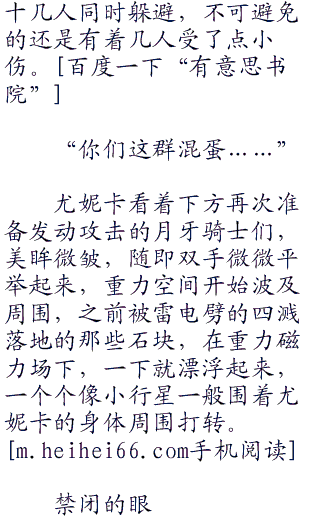 十几人同时躲避，不可避免
的还是有着几人受了点小
伤。[百度一下“有意思书
院”]
“你们这群混蛋……”
尤妮卡看着下方再次准
备发动攻击的月牙骑士们，
美眸微皱，随即双手微微平
举起来，重力空间开始波及
周围，之前被雷电劈的四溅
落地的那些石块，在重力磁
力场下，一下就漂浮起来，
一个个像小行星一般围着尤
妮卡的身体周围打转。
[m.heihei66.com手机阅读]
禁闭的眼